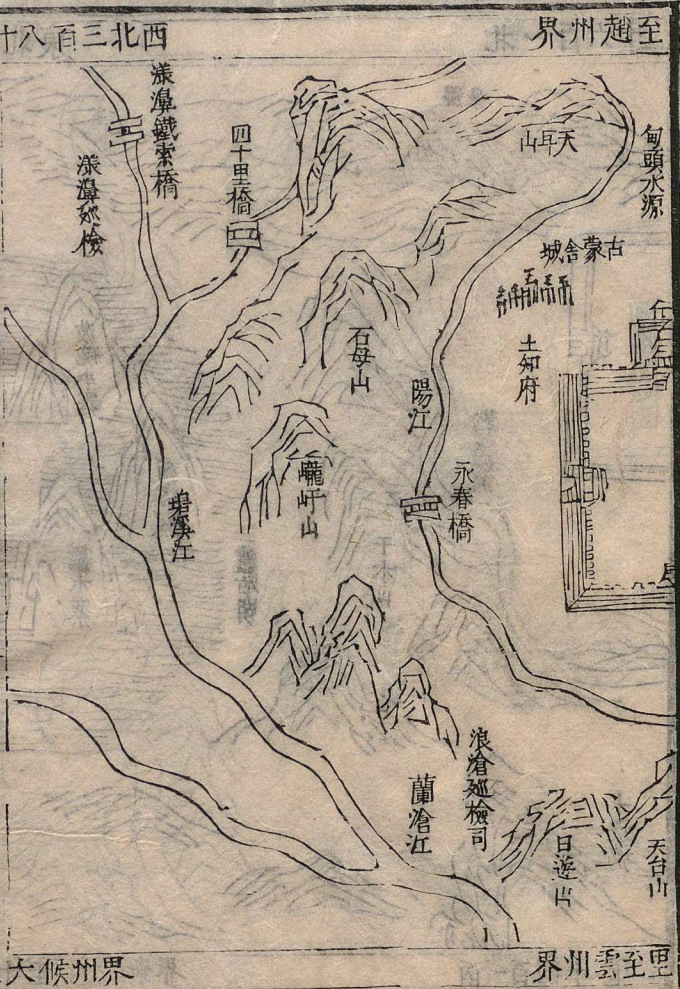 至趙州界
西北三百八十
甸頭水源
天耳山
古蒙舍城
土知府
四十里橋
漾濞鐵索橋
漾濞廵檢
石母山
陽江
永春橋
山
溪江
浪滄廵檢司
蘭滄江
天台山
日遊山
里至雲州界
大候州界